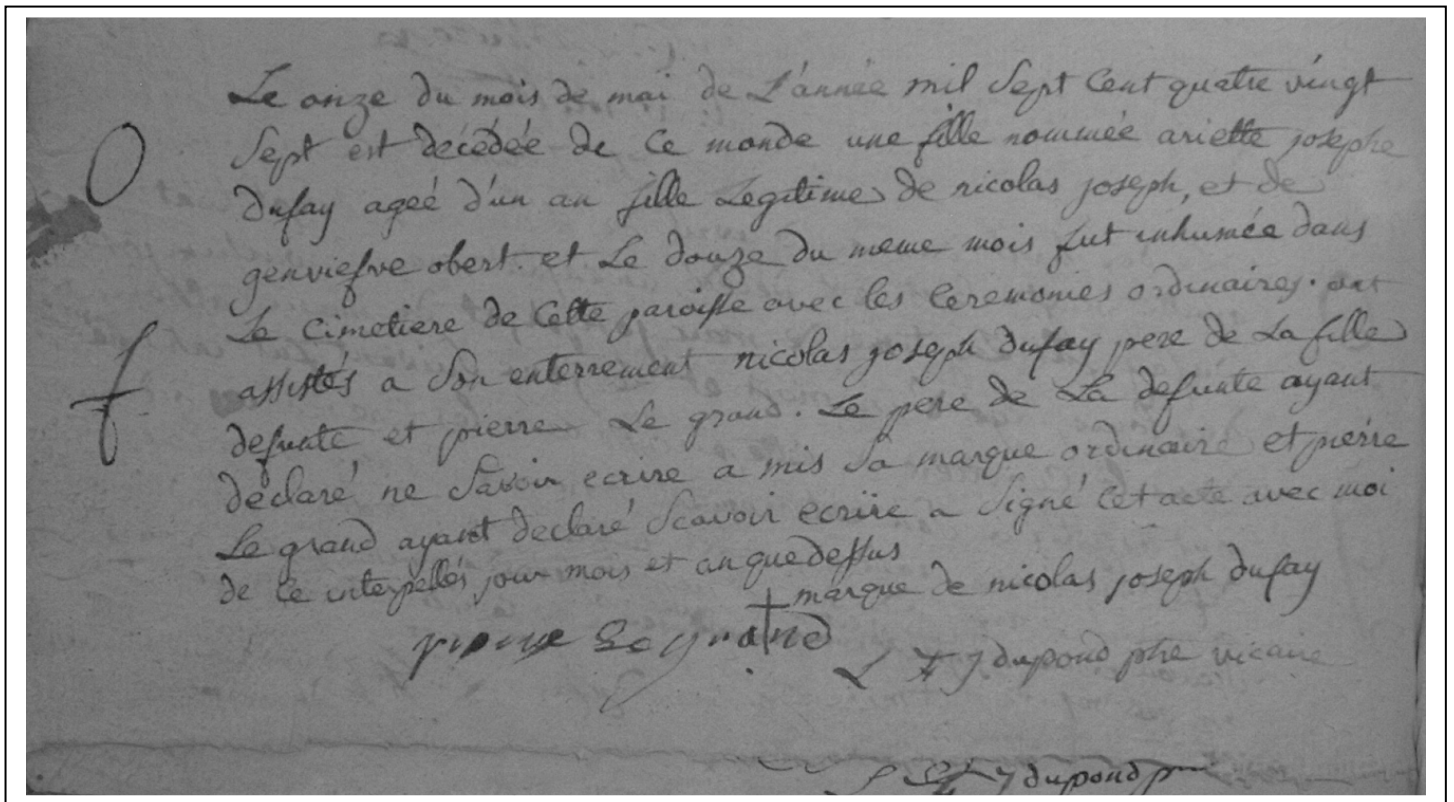 O
Le onze du mois de mai de L'année mil Sept Cent quatre vingt
Sept est décédée de Ce monde une fille nommée ariette josephe
dufay ageé d'un an fille Legitime de nicolas joseph, et de
genviefve obert. et Le douze du meme mois fut inhumée dans
Le Cimetiere de Cette paroisse avec les Ceremonies ordinaires. ont
f
assistés a Son enterrement nicolas joseph dufay pere de La fille
defunte et pierre Le grand. Le pere de La defunte ayant
déclaré ne Savoir ecrire a mis Sa marque ordinaire et pierre
Le grand ayant declaré Scavoir ecrire a Signé Cet acte avec moi
de Ce interpellés jour mois et an que dessus
marque de nicolas joseph dufay
pierre Le grand
dupond pbre vicaire
dupond